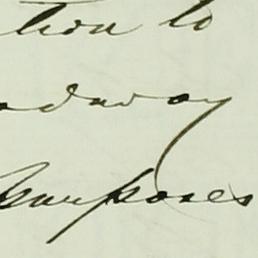 tion to
adway
purposes